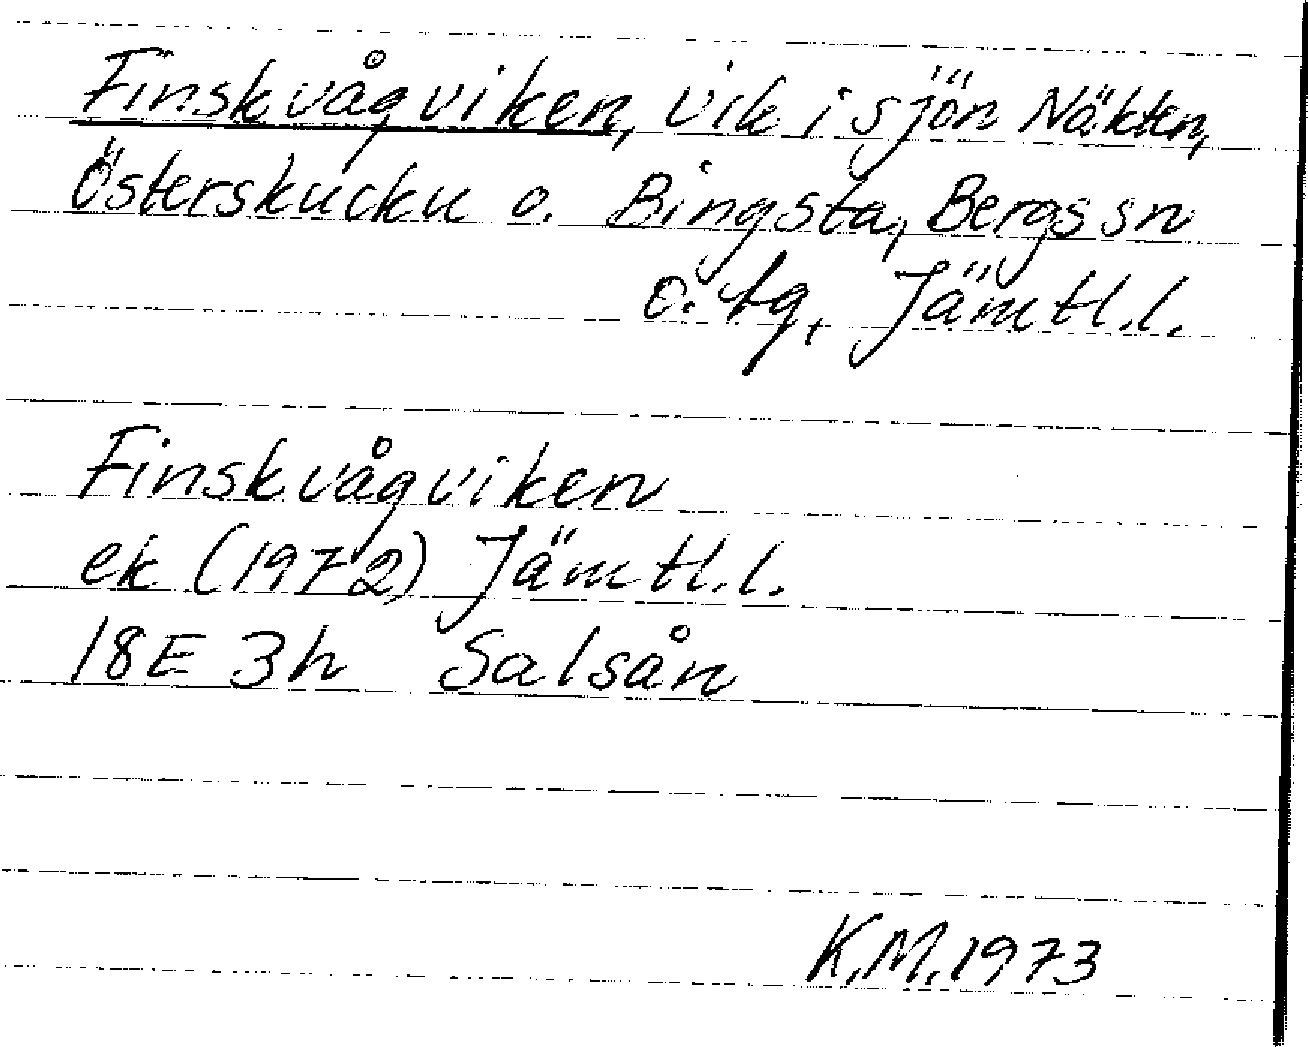 Finskvågviken, vik i sjön Näkten,
Österskucku o. Bingsta, Bergs sn
o. tg, Jämtl.l.
Finskvågviken
ek (1972) Jämtl.l.
18E 3h Salsån
K.M. 1973